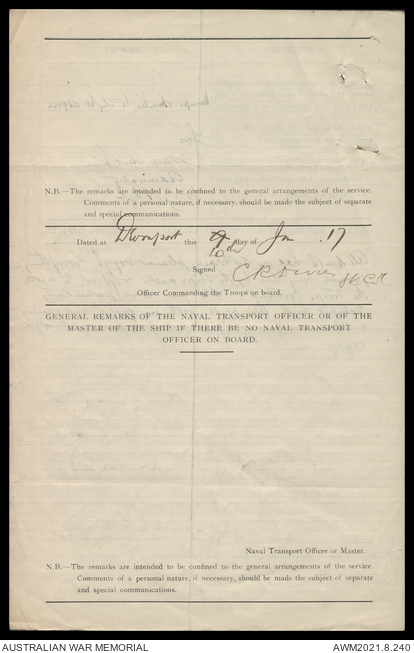 N.B.—The remarks are intended to be confined to the general arrangements of the service.
Comments of a personal nature, if necessary, should be made the subject of separate
and special communications.
Dated at Devonport this 10th day of Jan .17
Signed
Officer Commanding the Troops on board.
GENERAL REMARKS OF THE NAVAL TRANSPORT OFFICER OR OF THE
MASTER OF THE SHIP IF THERE BE NO NAVAL TRANSPORT
OFFICER ON BOARD.
Naval Transport Officer or Master.
N.B.—The remarks are intended to be confined to the general arrangements of the service
Comments of a personal nature, if necessary, should be made the subject of separate
and special communications.
AUSTRALIAN WAR MEMORIAL
AWM2021.8.240